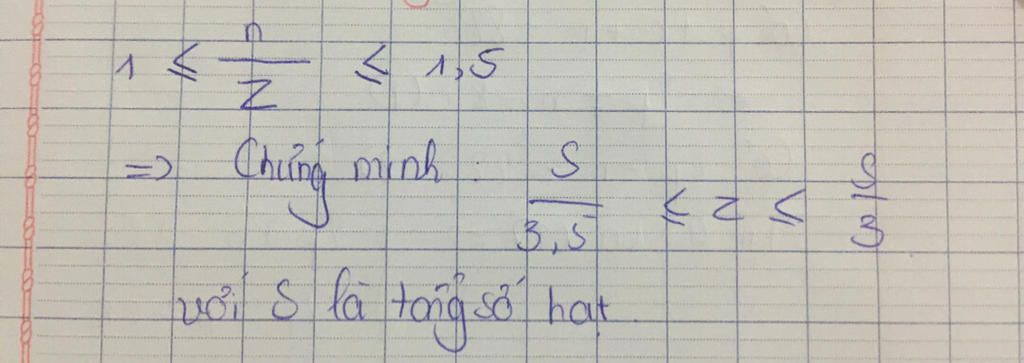 1 ≤ n/Z ≤ 1,5
=> Chứng minh : S/3,5 ≤ Z ≤ S/3
với S là tổng số hạt.